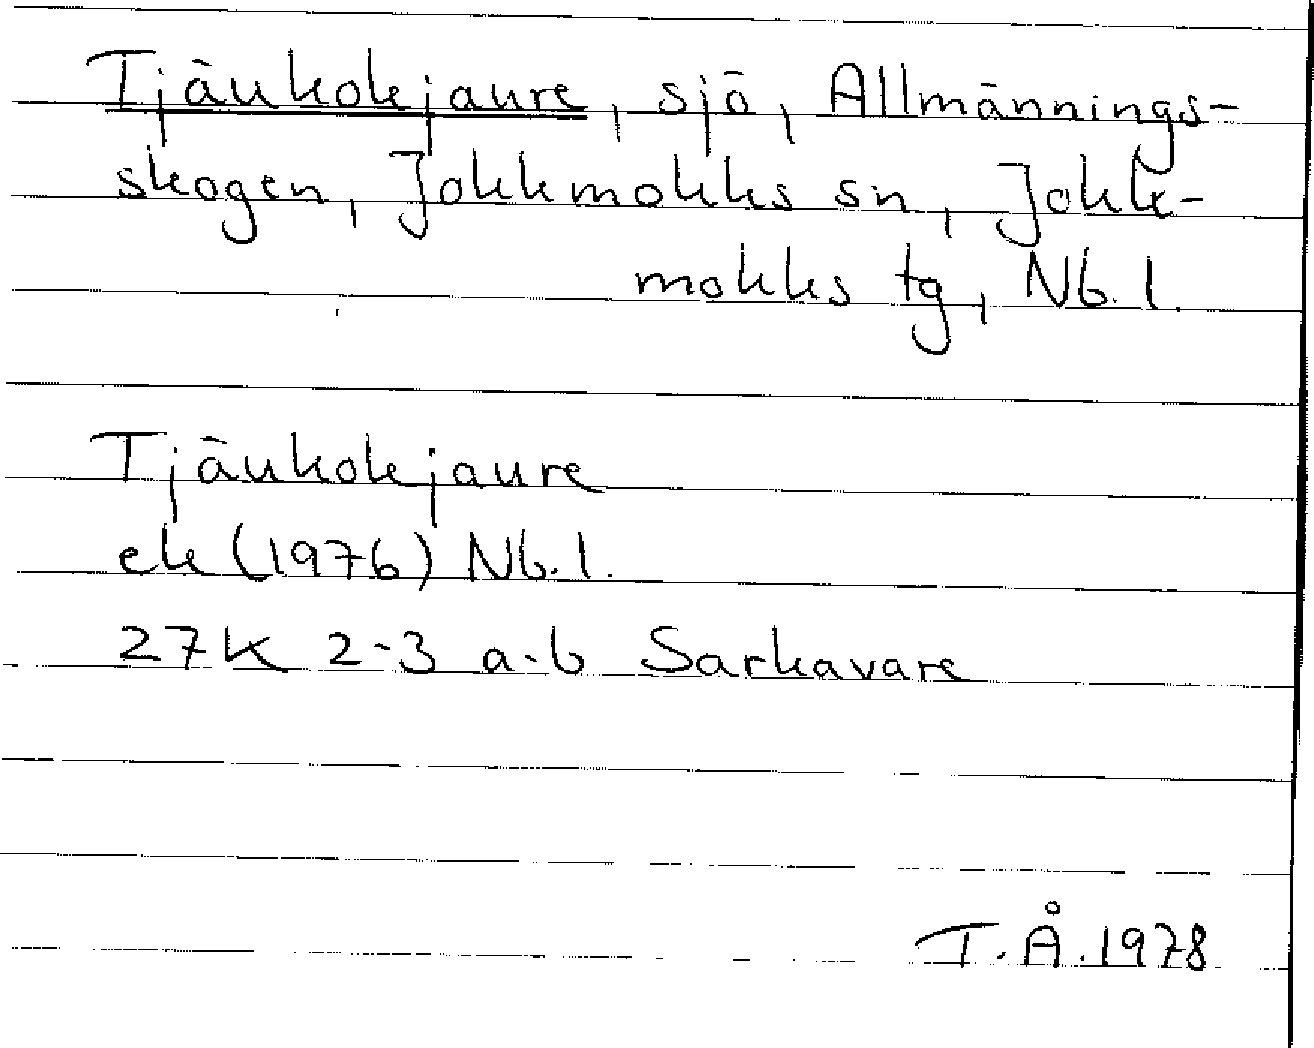 Tjäukokjaure, sjö, Allmännings-
skogen, Jokkmokks sn, Jokk-
mokks tg, Nb. l.
Tjäukokjaure
ek (1976) Nb. l.
27K 2-3 a-b Sarkavare
T.Å. 1978